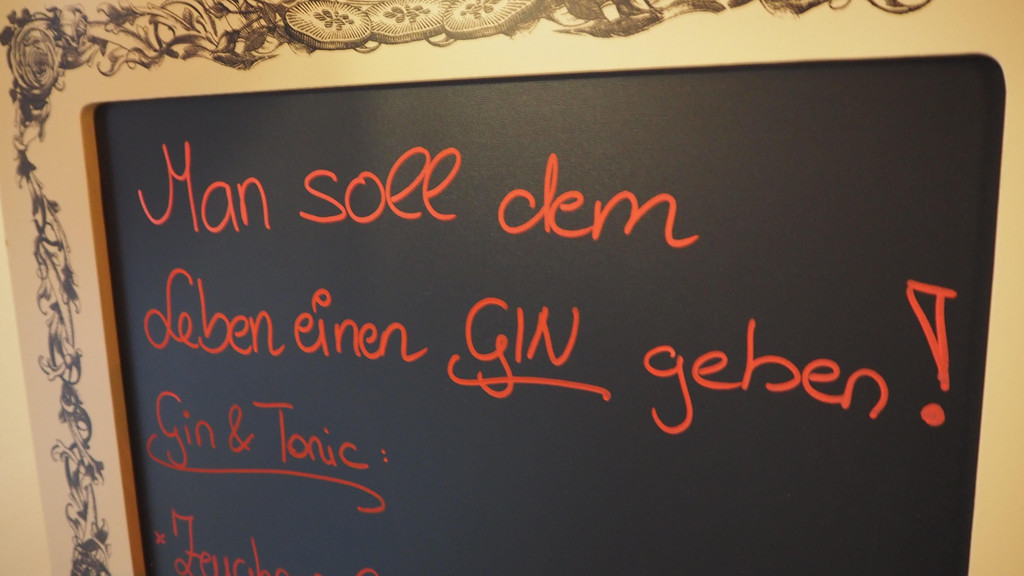 Man soll dem
Leben einen GIN geben!
Gin & Tonic:
*